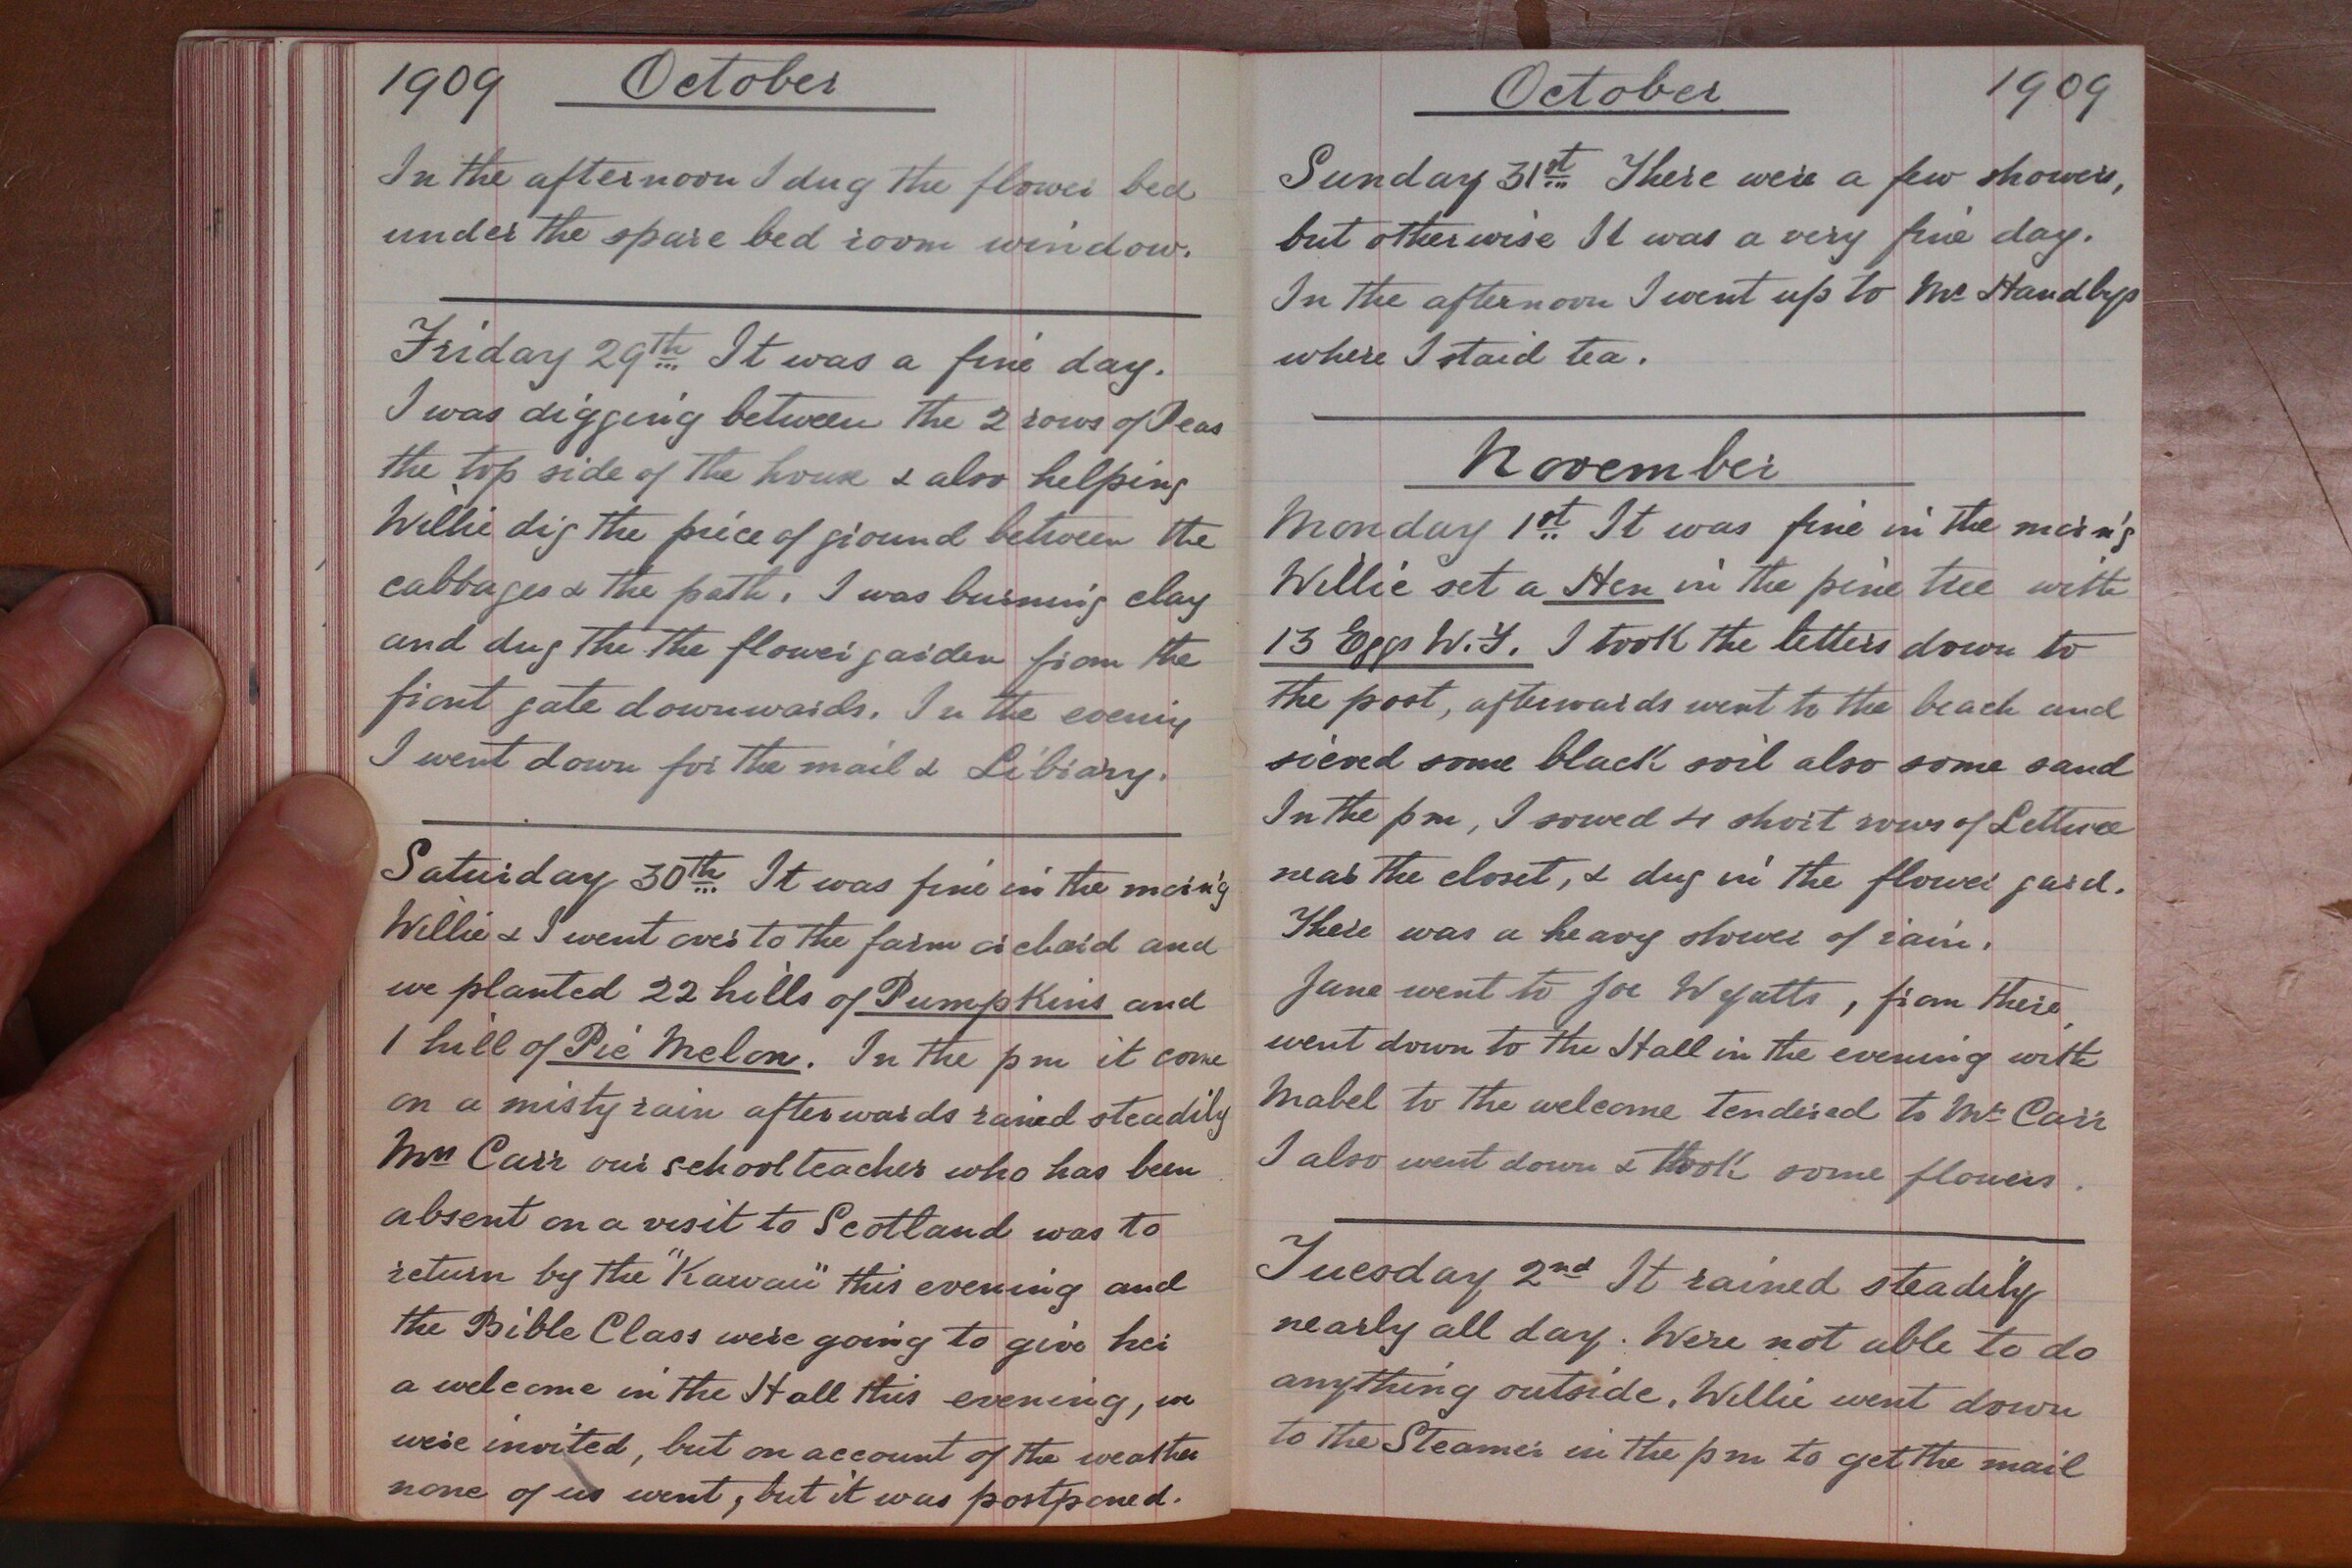 1909 October
In the afternoon I dug the flower bed
under the spare bed room window.
Friday 29th It was a fine day.
I was digging between the 2 rows of Peas
the top side of the house & also helping
Willie dig the peice of ground between the
cabbages & the path. I was burning clay
and dug the the flower garden from the
front gate downwards. In the evening
I went down for the mail & Library.
Saturday 30th It was fine in the morn'g
Willie & I went over to the farm orchard and
we planted 22 hills of Pumpkins and
1 hill of Pie Melon. In the pm it come
on a misty rain afterwards rained steadily
Mrs Carr our schoolteacher who has been
absent on a visit to Scotland was to
return by the "Kawau" this evening and
the Bible Class were going to give her
a welcome in the Hall this evening, we
were invited, but on account of the weather
none of us went, but it was postponed.
October 1909
Sunday 31st There were a few showers,
but otherwise It was a very fine day.
In the afternoon I went up to Mr Handbys
where I staid tea.
November
Monday 1st It was fine in the morn'g
Willie set a Hen in the pine tree with
13 Eggs W.Y. I took the letters down to
the post, afterwards went to the beach and
sieved some black soil also some sand
In the pm, I sowed 4 short rows of Lettuce
near the closet, & dug in the flower gard.
There was a heavy shower of rain.
Jane went to Joe Wyatts, from there
went down to the Hall in the evening with
Mabel to the welcome tendered to Mrs Carr
I also went down & took some flowers.
Tuesday 2nd It rained steadily
nearly all day. Were not able to do
anything outside. Willie went down
to the Steamer in the pm to get the mail